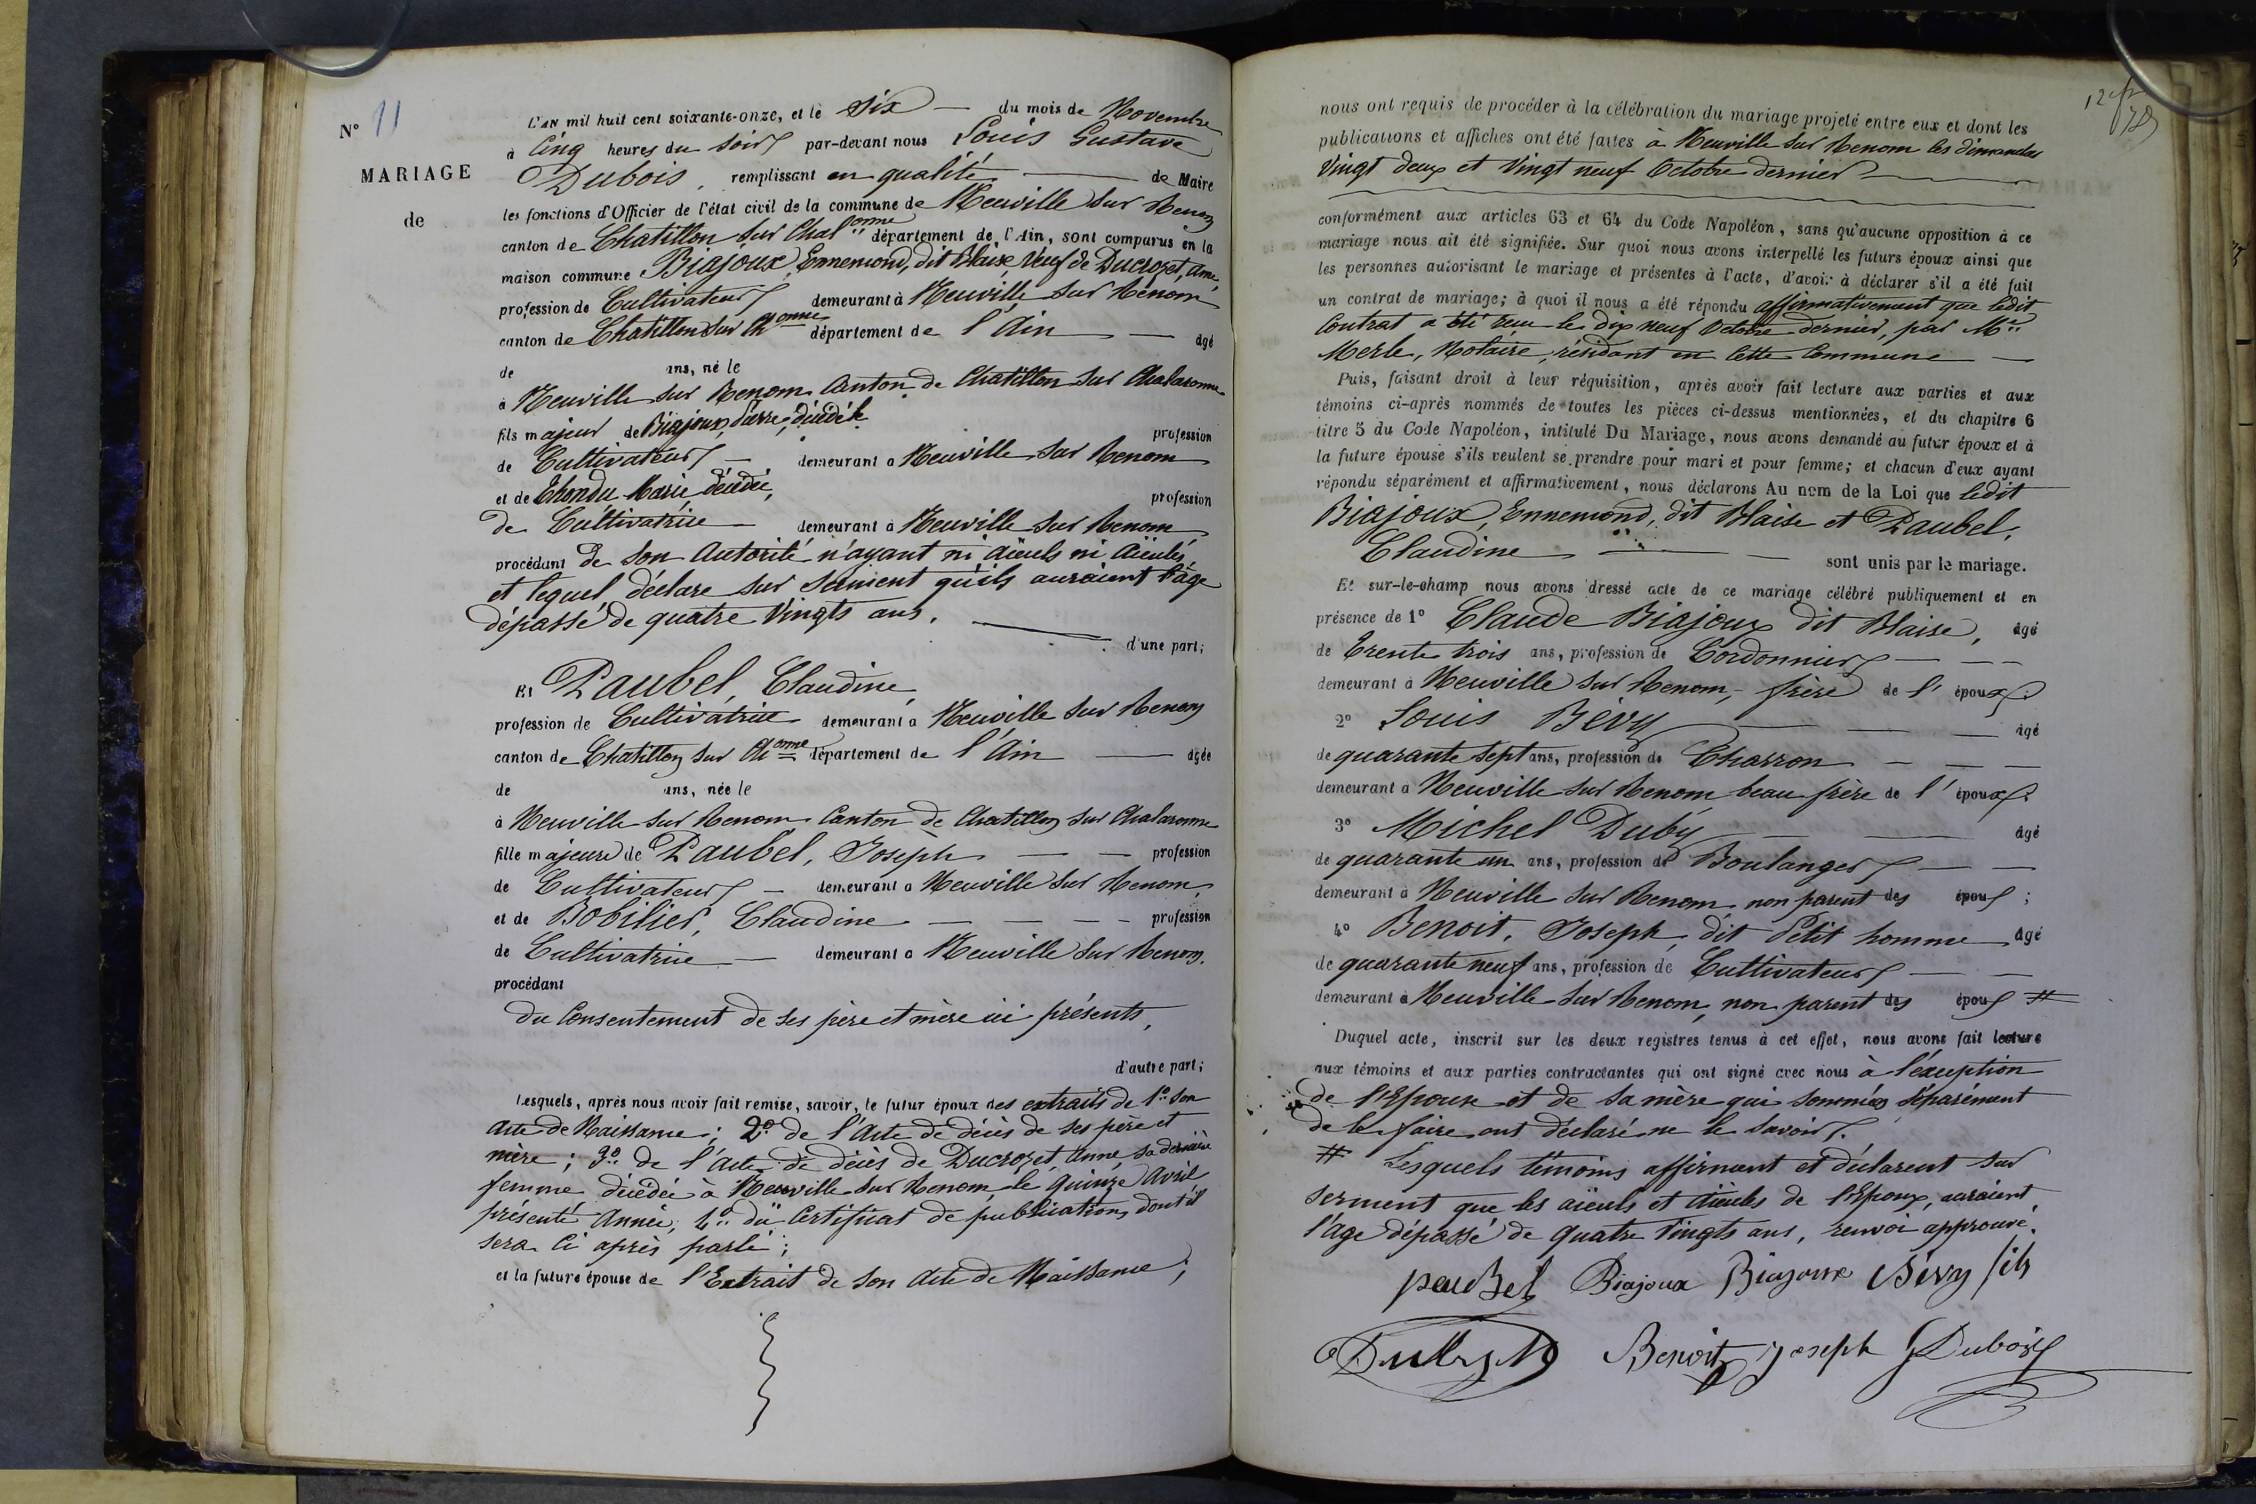 N° 11
MARIAGE
de
L'AN mil huit cent soixante-onze, et le six du mois de Novembre
à Cinq heures du Soir par-devant nous Louis Gustave
Dubois, remplissant en qualité de Maire
les fonctions d'Officier de l'état civil de la commune de Neuville sur Renom
canton de Chatillon sur Chal.onne département de l'Ain, sont comparus en la
maison commune Biajoux, Ennemond, dit Blaise, Veuf de Ducrozet, Anne,
profession de Cultivateur demeurant à Neuville sur Renom
canton de Chatillon sur Ch.onne département de l'Ain âgé
de ans, né le
à Neuville sur Renom Canton de Chatillon sur Chalaronne
fils majeur de Biajoux, Pierre, décédé profession
de Cultivateur demeurant à Neuville sur Renom
et de Chondu Marie, décédée, profession
de Cultivatrice demeurant à Neuville sur Renom
procédant de son Autorité n'ayant ni aïeuls ni aïeules
et lequel déclare sur serment qu'ils auraient l'âge
dépassé de quatre Vingts ans.
d'une part;
Et Paubel, Claudine,
profession de Cultivatrice demeurant à Neuville sur Renom
canton de Chatillon sur Ch.onne département de l'Ain âgée
de ans, née le
à Neuville sur Renom Canton de Chatillon sur Chalaronne
fille majeure de Paubel, Joseph profession
de Cultivateur demeurant à Neuville sur Renom
et de Bobilier, Claudine profession
de Cultivatrice demeurant à Neuville sur Renom.
procédant
du Consentement de ses père et mère ici présents,
d'autre part;
Lesquels, après nous avoir fait remise, savoir, le futur époux des extraits de 1° son
Acte de Naissance; 2° de l'Acte de décès de ses père et
mère; 3° de l'acte de décès de Ducrozet, Anne, sa dernière
femme décédée à Neuville sur Renom le quinze Avril
présente Année; 4° du Certificat de publications dont il
sera Ci après parlé;
et la future épouse de l'Extrait de son Acte de Naissance;
nous ont requis de procéder à la célébration du mariage projeté entre eux et dont les
publications et affiches ont été faites à Neuville sur Renom les dimanches
Vingt deux et Vingt neuf Octobre dernier
conformément aux articles 63 et 64 du Code Napoléon, sans qu'aucune opposition à ce
mariage nous ait été signifiée. Sur quoi nous avons interpellé les futurs époux ainsi que
les personnes autorisant le mariage et présentes à l'acte, d'avoir à déclarer s'il a été fait
un contrat de mariage; à quoi il nous a été répondu affirmativement que ledit
Contrat a été reçu le dix neuf Octobre dernier, par Me
Merle, Notaire résidant en Cette Commune
Puis, faisant droit à leur réquisition, après avoir fait lecture aux parties et aux
témoins ci-après nommés de toutes les pièces ci-dessus mentionnées, et du chapitre 6
titre 5 du Code Napoléon, intitulé Du Mariage, nous avons demandé au futur époux et à
la future épouse s'ils veulent se prendre pour mari et pour femme; et chacun d'eux ayant
répondu séparément et affirmativement, nous déclarons Au nom de la Loi que ledit
Biajoux, Ennemond, dit Blaise et Paubel,
Claudine sont unis par le mariage.
Et sur-le-champ nous avons dressé acte de ce mariage célébré publiquement et en
présence de 1° Claude Biajoux dit Blaise, âgé
de Trente trois ans, profession de Cordonnier
demeurant à Neuville sur Renom, frère de l'époux;
2° Louis Bévy âgé
de quarante sept ans, profession de Charron
demeurant à Neuville sur Renom beau frère de l'époux;
3° Michel Duby âgé
de quarante un ans, profession de Boulanger
demeurant à Neuville sur Renom non parent des époux;
4° Benoit, Joseph, dit Petit homme âgé
de quarante neuf ans, profession de Cultivateur
demeurant à Neuville sur Renom, non parent des époux #
Duquel acte, inscrit sur les deux registres tenus à cet effet, nous avons fait lecture
aux témoins et aux parties contractantes qui ont signé avec nous à l'éxception
de l'Epouse et de sa mère qui sommées séparément
de le faire ont déclaré ne le savoir.
# Lesquels témoins affirment et déclarent sur
serment que les aïeuls et aïeules de l'Epoux, auraient
l'âge dépassé de quatre Vingts ans, renvoi approuvé.
paubel Biajoux Biajoux Bévy fils
Duby M Benoit joseph G Dubois